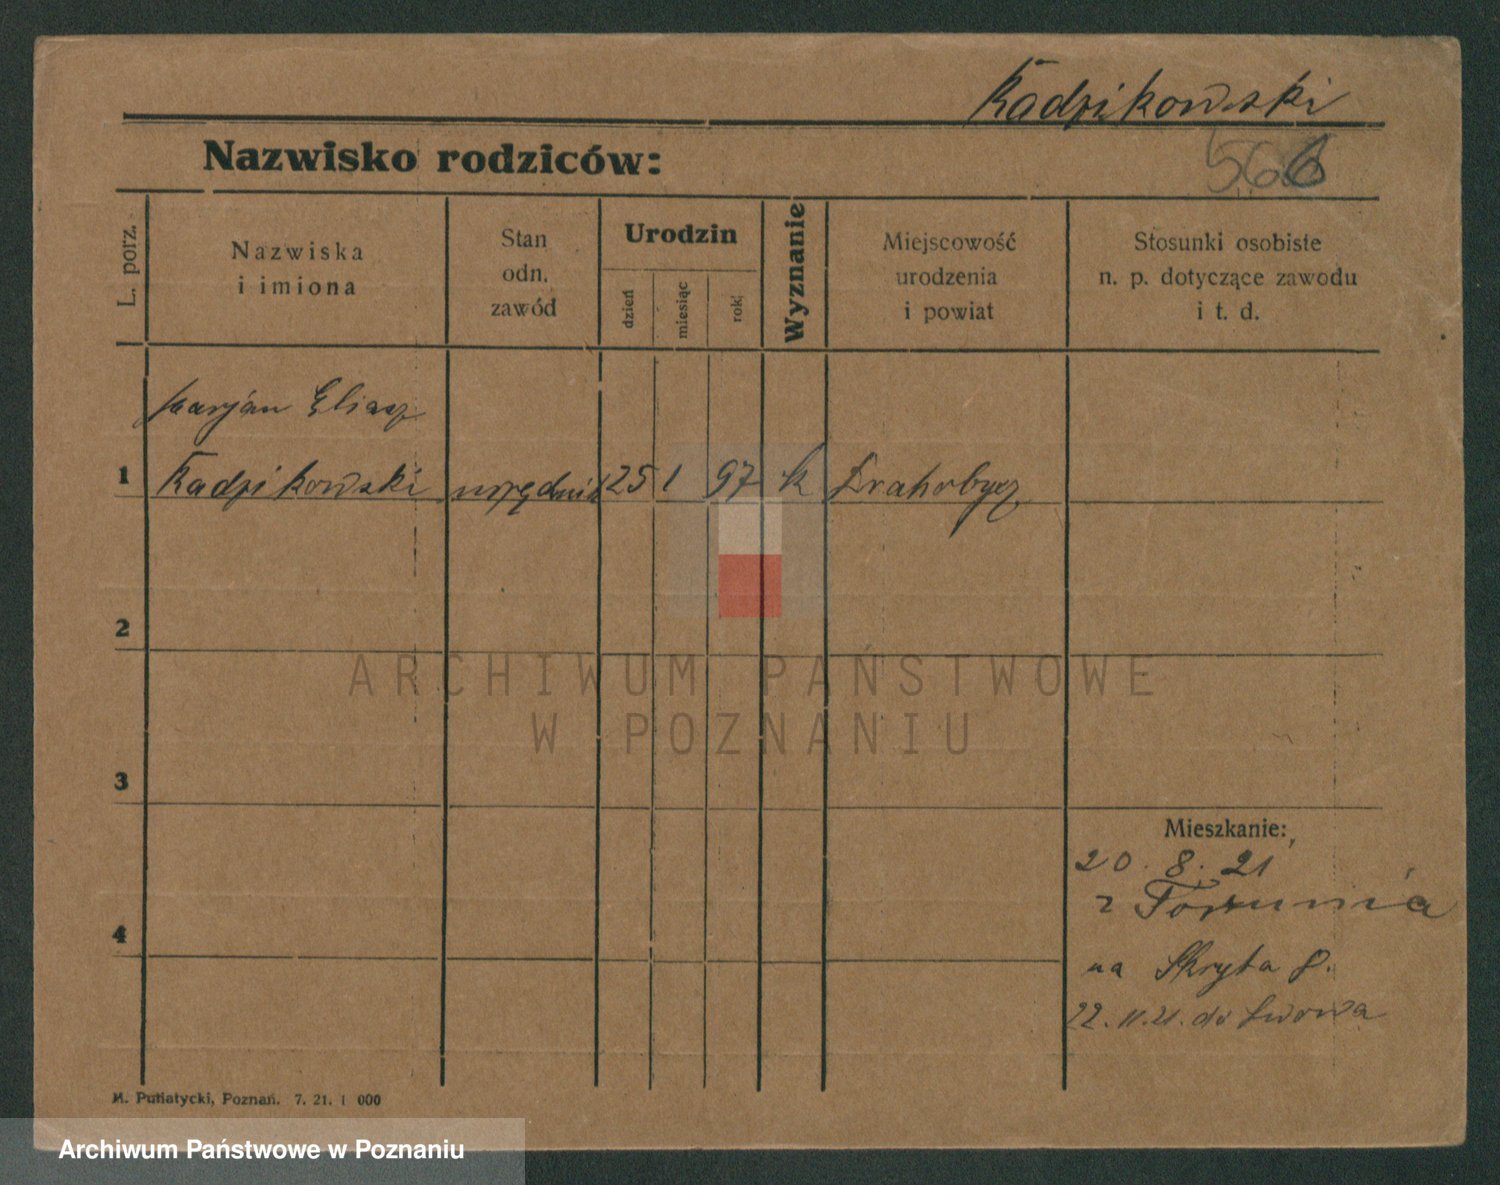 Kadzikowski
Nazwisko rodziców:
566
L. porz.
Nazwiska
i imiona
Stan
odn.
zawód
Urodzin
dzień
miesiąc
rok
Wyznanie
Miejscowość
urodzenia
i powiat
Stosunki osobiste
n. p. dotyczące zawodu
i t. d.
Marjan Eliasz
1 Kadzikowski urzędnik 25 1 97 k Drahobycz
2
ARCHIWUM PAŃSTWOWE
W POZNANIU
3
Mieszkanie:
20. 8. 21
z Torunia
4
na Skryta 8.
22. 11. 21. do Lwowa
M. Putiatycki, Poznań. 7. 21. 1 000
Archiwum Państwowe w Poznaniu